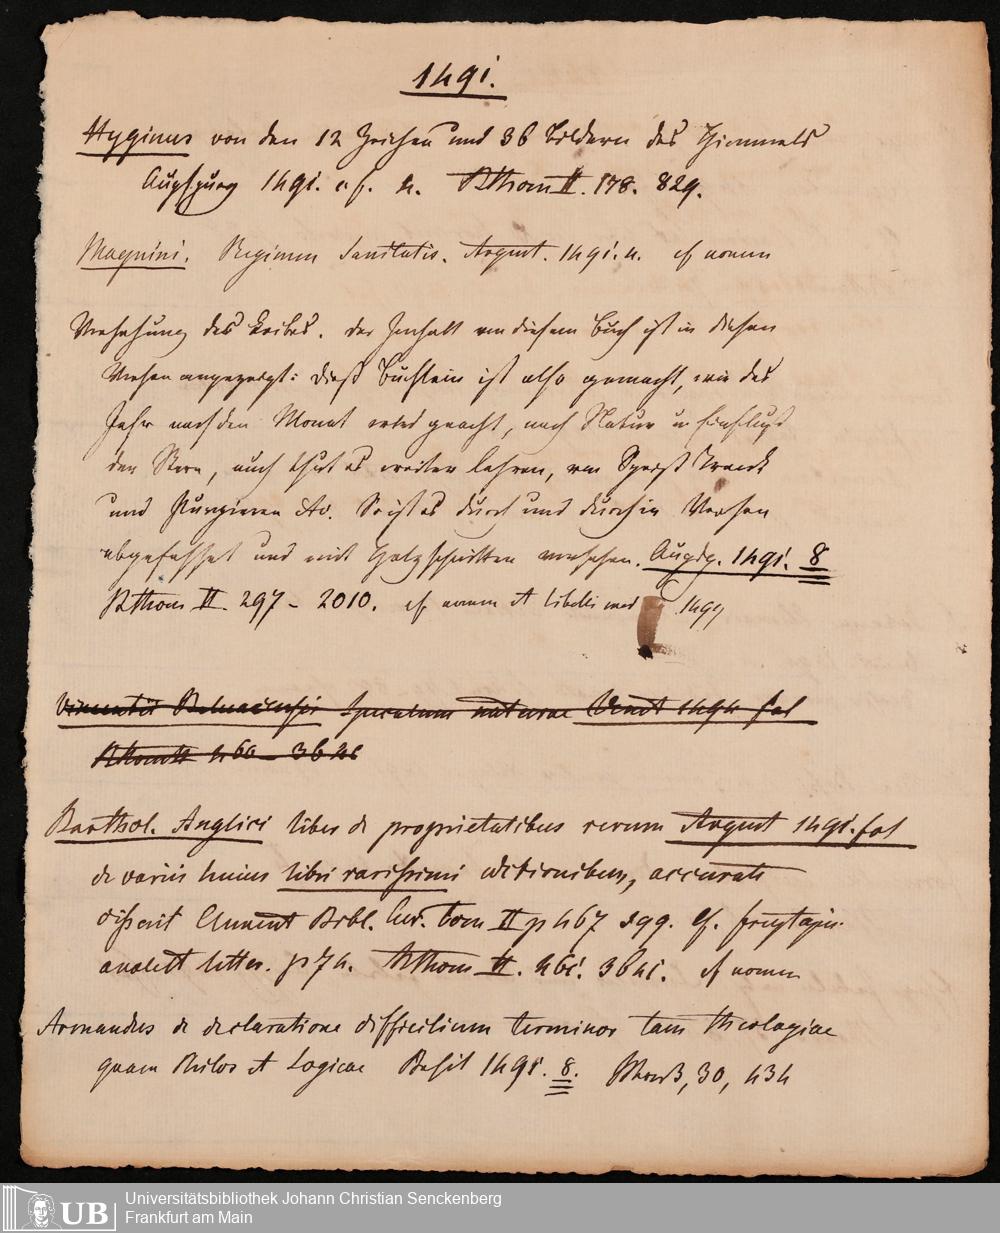 1491.
Hyginus von den 12 Zeichen und 36 Bildern des Himmels
Augspurg 1491. 4. Bthom II. 178. 829.
Magnini. Regimen Sanitatis. August. 1491. 4. cf nomen
Versehung des Leibes. der Innhalt von diesem Buch ist in diesen
Versen angezeigt: dieß Büchlein ist also gemacht, wie das
Jahr nach den Monat wird geacht, nach Natur u Einfluß
den Stern, auch thut es weiter lehren, von Speiß Tranck
und Purgieren etc. So ist es durch und durch in Versen
abgefasset und mit Holzschnitten versehen. Augsp. 1491. 8
Bthom II. 297 - 2010. cf nomen et libelli med 1499
Vincentii Beluacensis Speculum naturae Venet 1494 fol
Bthom II 460 - 3642
Barthol. Anglici liber de proprietatibus rerum August 1491. fol
de variis huius libri rarissimi editionibus, accurate
disserit Clement Bibl. Cur. tom II p 467 sqq. cf. freytagii
analect litter. p 74. Bthom II. 461. 3641. cf nomen
Armandus de declaratione difficilium terminor tam theologiae
quam Philos et Logicae Basil 1491. 8. 30, 434
Universitätsbibliothek Johann Christian Senckenberg
Frankfurt am Main
UB